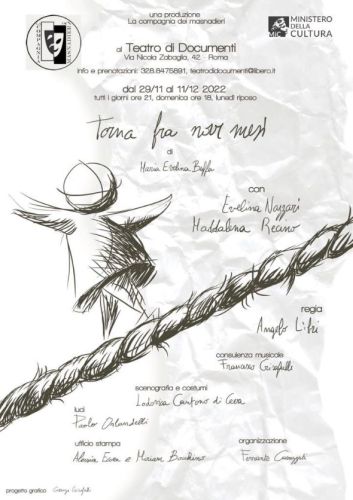 una produzione
La compagnia dei masnadieri
MiC MINISTERO
DELLA
CULTURA
al Teatro di Documenti
Via Nicola Zabaglia, 42 - Roma
info e prenotazioni: 328.8475891, teatrodidocumenti@libero.it
dal 29/11 al 11/12 2022
tutti i giorni ore 21, domenica ore 18, lunedì riposo
Torna fra nove mesi
di
Maria Evelina Buffa
con
Evelina Nazzari
Maddalena Recino
regia
Angelo Libri
consulenza musicale
Francesco
scenografia e costumi
Lodovica Cantono di Ceva
luci
Paolo Orlandelli
ufficio stampa
Alessia Ecora e Miriam Bocchino
organizzazione
Fernando
progetto grafico